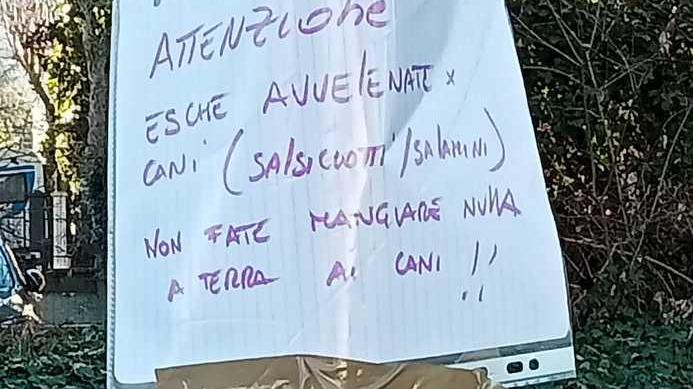 ATTENZIONE
ESCHE AVVELENATE x
CANI (SALSICCIOTTI/SALAMINI)
NON FATE MANGIARE NULLA
A TERRA AI CANI !!